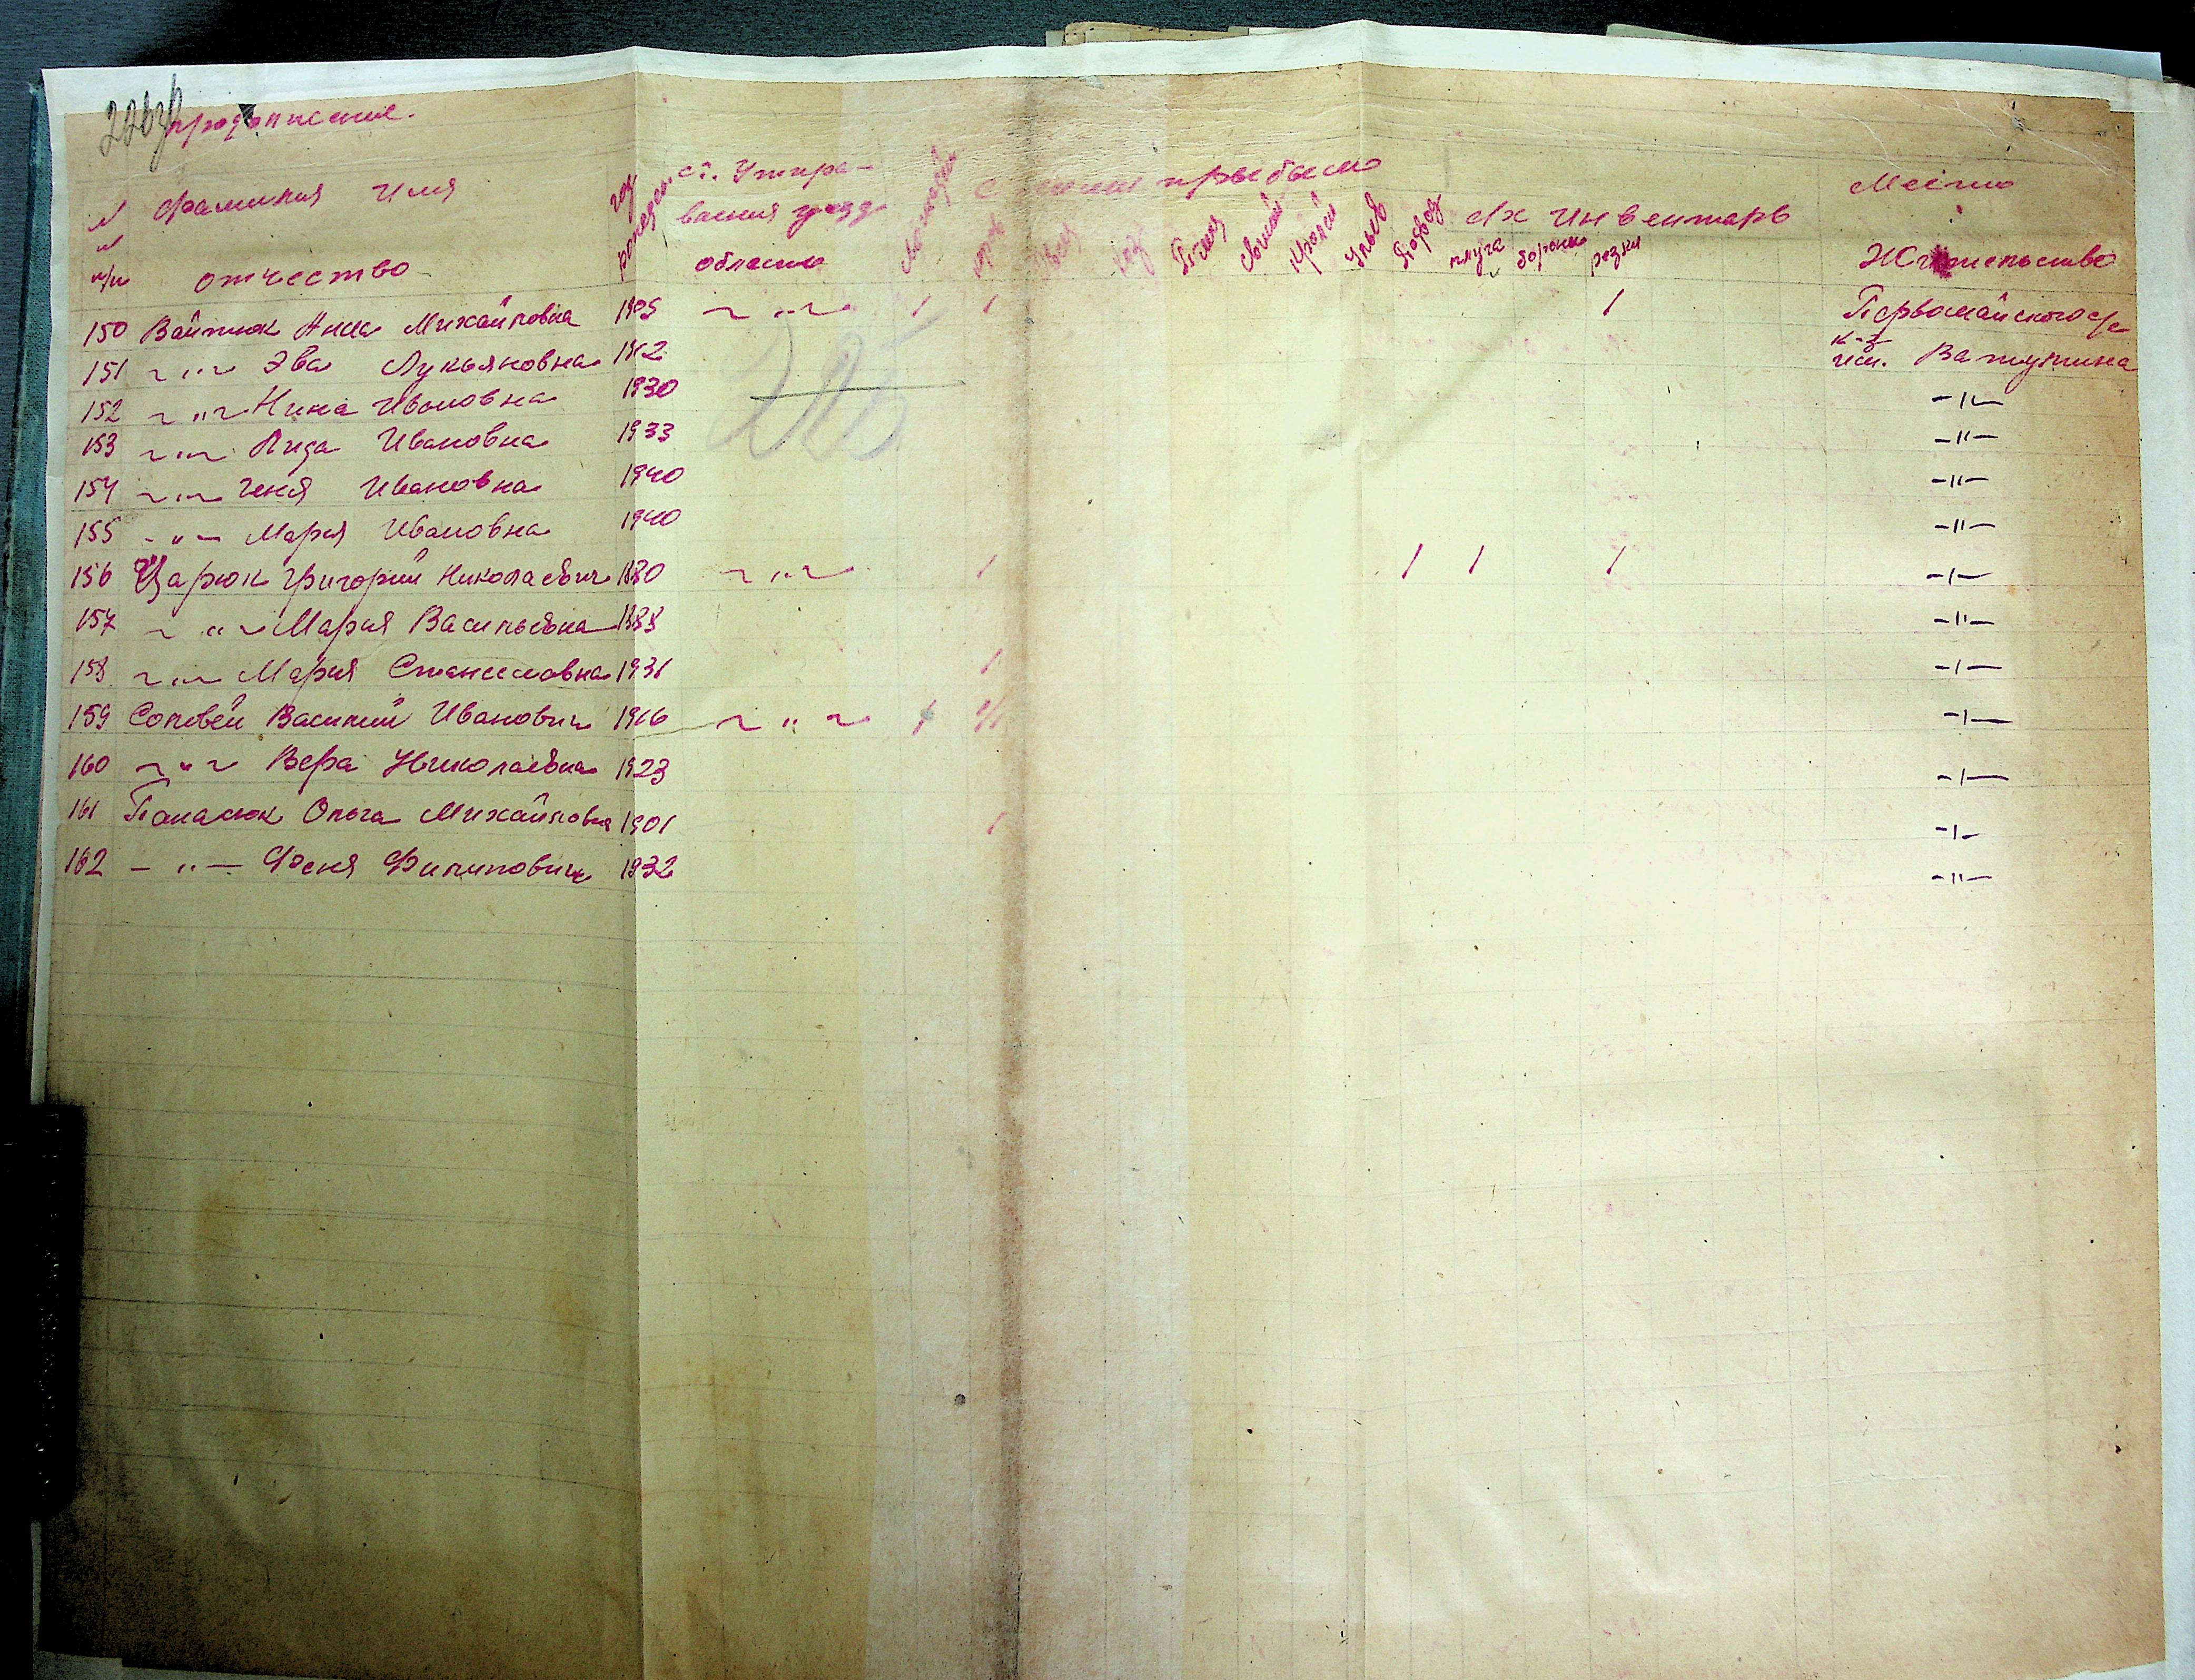 продолжение.
Фамилия Имя
отчество
№ п/п
год рождения
ст. Отпра-
вления
области
с ними прибыло
лошадей
коров
овец
коз
с/х Инвентарь
плуга борона резки
Место
Жительство
150 Войтюк Анна Михайловна 1905 ~ " ~ 1 1 1 Первомайского с/с
к-з
151 ~ " ~ Эва Лукьяновна 1862 им. Ватутина
152 ~ " ~ Нина Ивановна 1930 -"-
153 ~ " ~ Лида Ивановна 1933 -"-
154 ~ " ~ Геня Ивановна 1940 -"-
155 - " - Мария Ивановна 1940 -"-
156 Царюк Григорий Николаевич 1880 ~ " ~ 1 1 1 1 -"-
157 ~ " ~ Мария Васильевна 1888 -"-
158 ~ " ~ Мария Станиславовна 1931 1 -"-
159 Соловей Василий Иванович 1916 ~ " ~ 1 -"-
160 ~ " ~ Вера Николаевна 1923 -"-
161 Панасюк Ольга Михайловна 1901 1 -"-
162 - " - Феня Филипович 1932 -"-